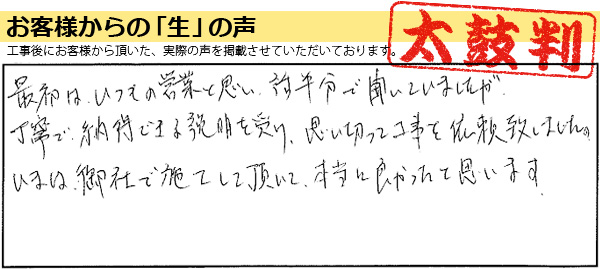 お客様からの「生」の声
工事後にお客様から頂いた、実際の声を掲載させていただいております。
太鼓判
最初は、いつもの営業と思い、話半分で聞いていましたが、
丁寧で、納得できる説明を受け、思い切って工事を依頼致しました。
いまは、御社で施工して頂いて、本当に良かったと思います。